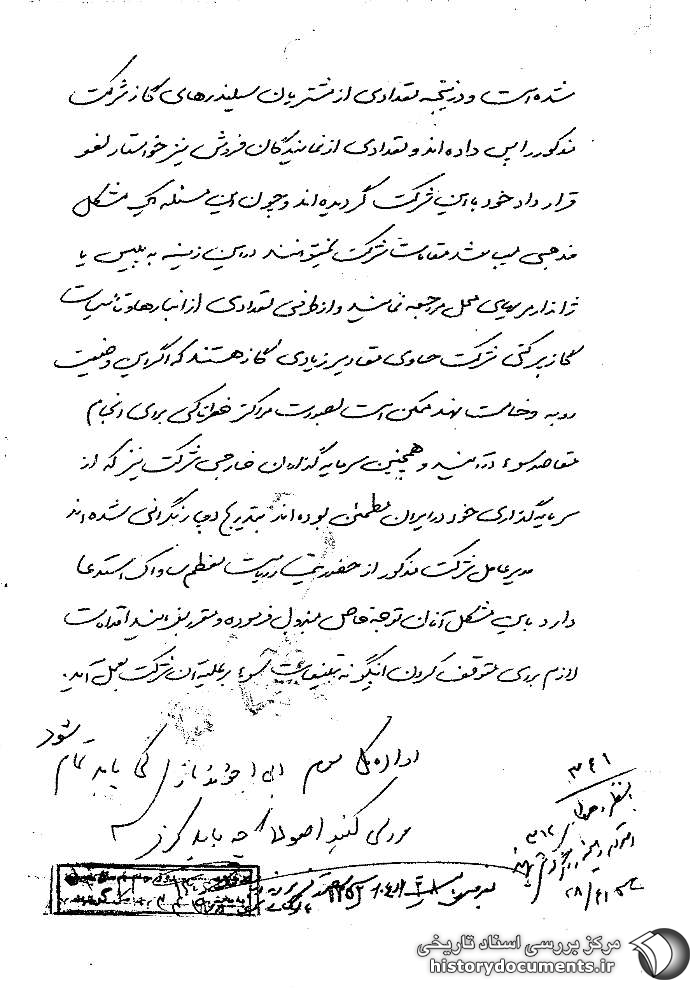 شده است و در نتیجه تعدادی از مشتریان سیلندرهای گاز شرکت
مذکور را پس داده‌اند و تعدادی از نمایندگان فروش نیز خواستار لغو
قرارداد خود با این شرکت گردیده‌اند و چون این مسئله یک مشکل
مذهبی میباشد مقامات شرکت نمیتوانند در این زمینه به پلیس یا
ژاندارمریهای محل مراجعه نمایند و از طرفی تعدادی از انبارها و تأسیسات
گاز پرکنی شرکت حاوی مقادیر زیادی گاز هستند که اگر این وضعیت
رو به وخامت نهد ممکن است بصورت مراکز خطرناکی برای انجام
مقاصد سوء درآیند و همچنین سرمایه‌گذاران خارجی شرکت نیز که از
سرمایه‌گذاری خود در ایران مطمئن بوده‌اند بتدریج دچار نگرانی شده‌اند
مدیرعامل شرکت مذکور از حضور تیمسار ریاست معظم ساواک استدعا
دارد باین مشکل آنان توجه خاص مبذول فرموده و مقرر فرمایند اقدامات
لازم برای متوقف کردن اینگونه تبلیغات سوء بر علیه آن شرکت بعمل آید.
اداره کل سوم این بازی کی باید تمام شود
بررسی کنید اصولاً چه باید کرد
۳۴۱
۳۱۲
۲۸/۴
مرکز بررسی اسناد تاریخی
historydocuments.ir